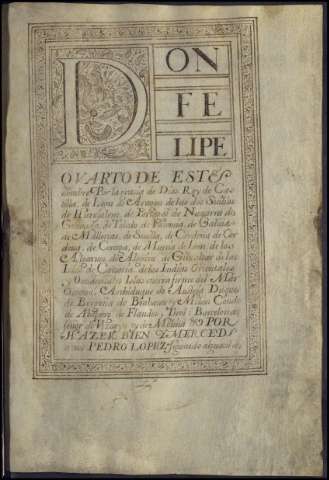 DON
FE
LIPE
QVARTO DE ESTE
nombre Por la gracia de Dios Rey de Cas
tilla, de Leon de Aragon de las dos Sicilias
de Hierusalem, de Portugal de Navarra de
Granada, de Toledo de Valencia, de Galicia
de Mallorcas, de Sevilla, de Cerdeña de Cor
doua, de Corcega, de Murcia de Jaen de los
Algarues de Algecira de Gibraltar de las
Islas de Canaria de las Indias Orientales
y Occidentales Islas, tierra firme del Mar
Oceano, Archiduque de Austria Duque
de Borgoña de Brabante y Milan Conde
de Abspurg de Flandes, Tirol, Barcelona
señor de Vizcaya y de Molina POR
HAZER BIEN Y MERCED
a vos PEDRO LOPEZ